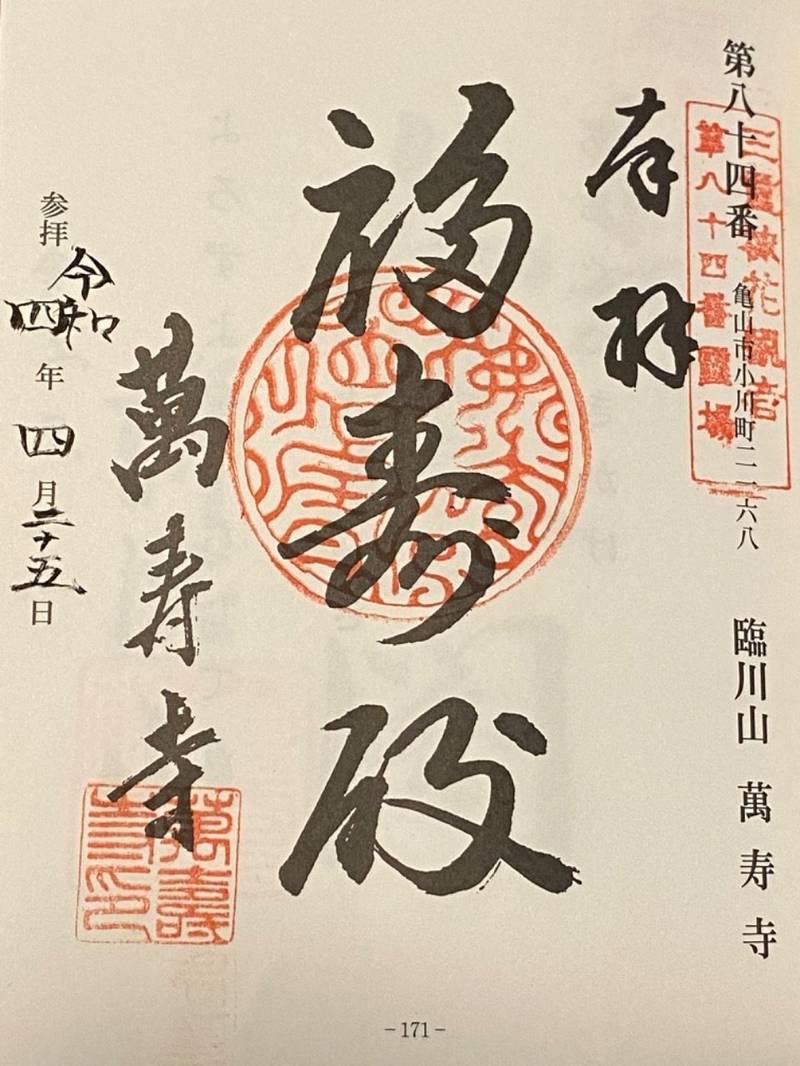 第八十四番 亀山市小川町一一六八 臨川山 萬寿寺
三重梅花観音
第八十四番霊場
奉拝
福寿殿
萬寿寺
参拝 令和四年四月二十五日
萬壽寺印
-171-